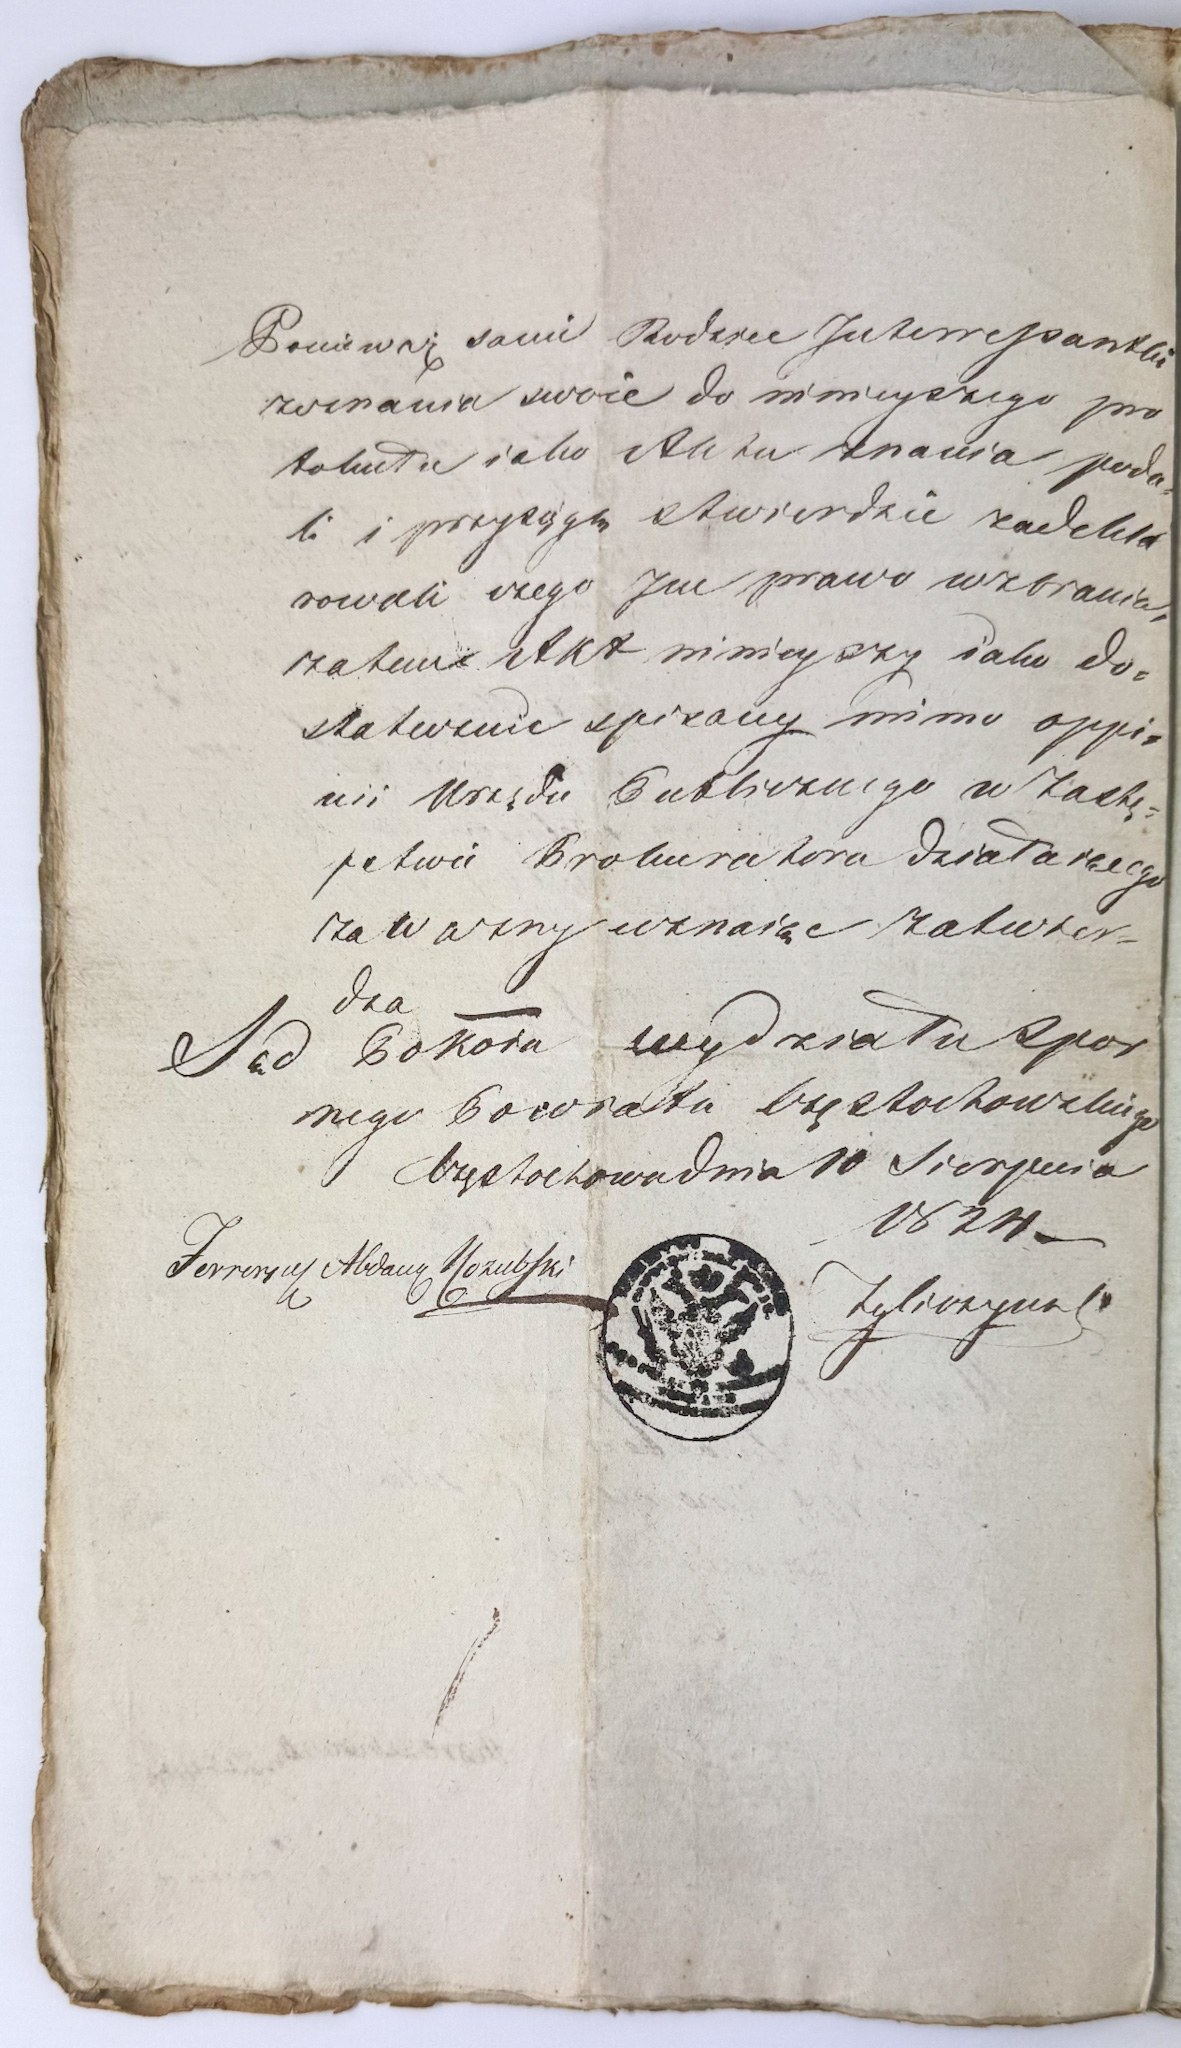 Ponieważ sami Rodzice Interressantki
zeznania swoie do ninieyszego pro
tokułu iako Aktu znania poda-
li i przysięgą stwierdzić zadekla
rowali czego Im prawo wzbrania,
zatem Akt ninieyszy iako do-
statecznie spisany mimo oppi-
nii Urzędu Publicznego w Zastę-
pstwie Prokuratora działaiącego
za ważny uznaiąc zatwier-
dza
Sąd Pokoiu wydziału Spor
nego Powiatu Częstochowskiego
Częstochowa dnia 10 Sierpnia
1824
Ferrerius Abdank Kozubski